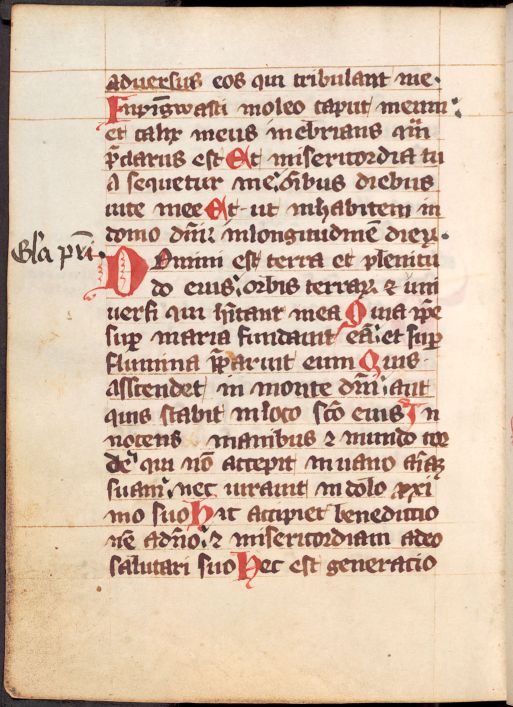 aduersus eos qui tribulant me.
Inpīgwasti in oleo caput meum:
et calix meus inebrians qm̄
p̄clarus est Et misericordia tu
a sequetur me: om̄ibus diebus
uite mee Et ut inhabitem in
domo dn̄i: in longitudinē dieꝝ.
Gl'a pr̄i.
Domini est terra et plenitu
do eius: orbis terraꝝ ⁊ uni
uersi qui hītant in ea Quia ip̄e
sup̄ maria fundauit eā: et sup̄
flumina p̄parauit eum Quis
asscendet in monte dn̄i: aut
quis stabit in loco scō eius In
nocens manibus ⁊ mundo cor
de: qui nō accepit in uano aīaꝫ
suam: nec iurauit in dolo pxi
mo suo Hic accipiet benedictio
nē a dn̄o: ⁊ misericordiam a deo
salutari suo Hec est generacio